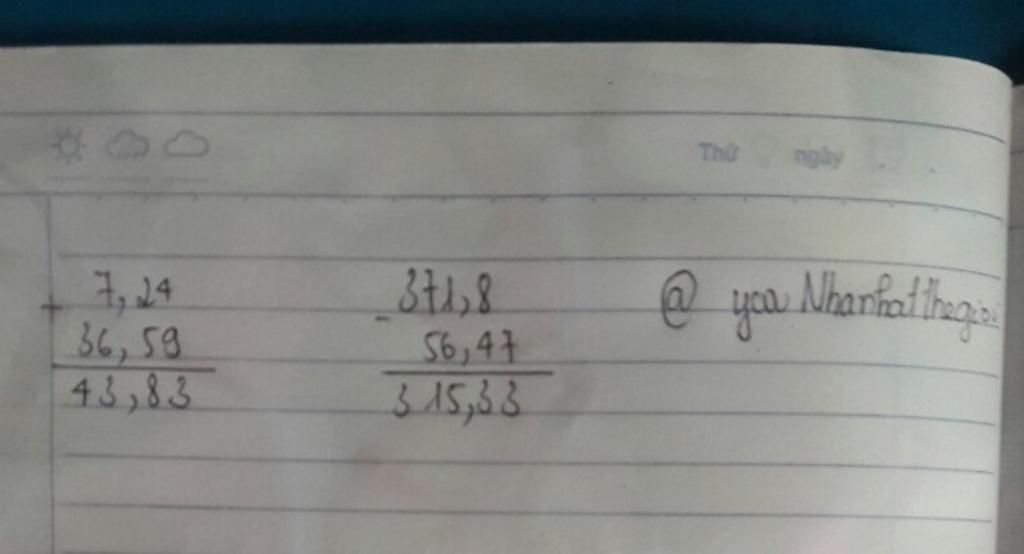 Thứ ngày
+ 7,24
36,59
43,83
- 371,8
56,47
315,33
@ yoa Nhanhatthegioi